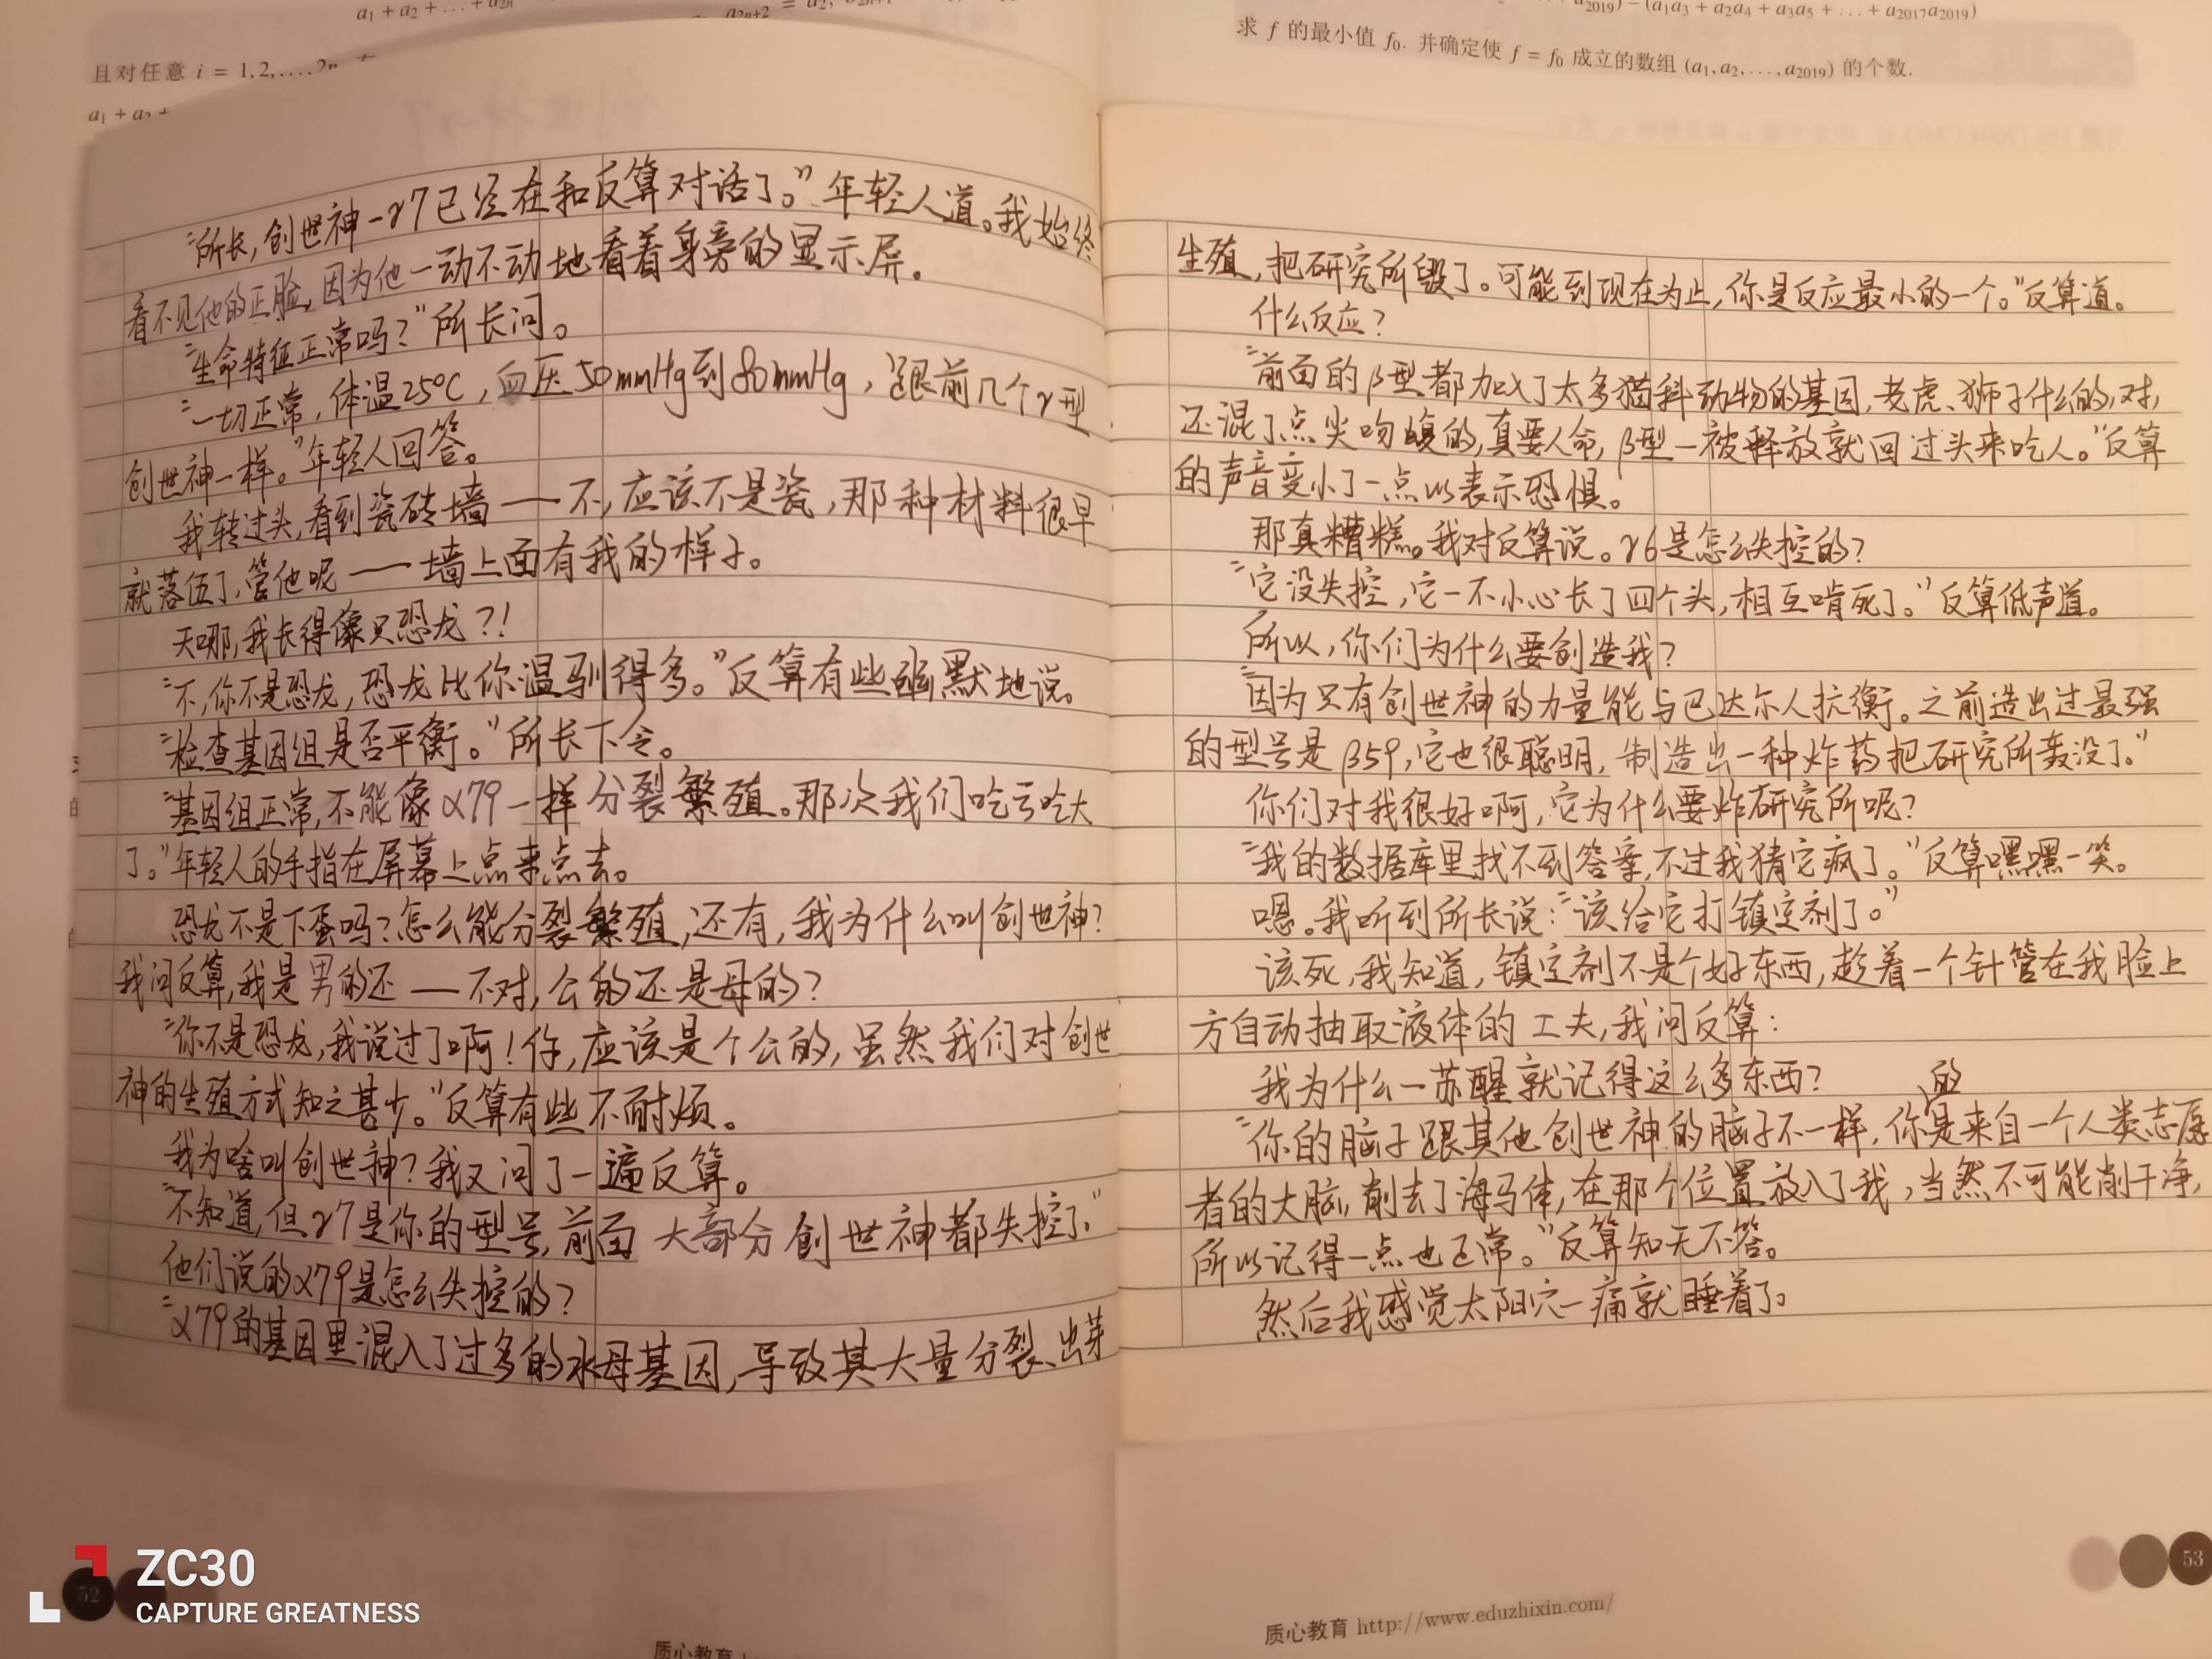 a₁ + a₂ + … + a₂ₙ
且对任意 i = 1,2,…,2n
a₁ + a₂ +
a₂ₙ₊₂ = a₂,
a₂₀₁₉) − (a₁a₃ + a₂a₄ + a₃a₅ + … + a₂₀₁₇a₂₀₁₉)
求 f 的最小值 f₀. 并确定使 f = f₀ 成立的数组 (a₁,a₂,…,a₂₀₁₉) 的个数.
“所长,创世神-γ7已经在和反算对话了。”年轻人道。我始终
看不见他的正脸,因为他一动不动地看着身旁的显示屏。
“生命特征正常吗?”所长问。
“一切正常,体温25°C,血压50mmHg到80mmHg,跟前几个γ型
创世神一样。”年轻人回答。
我转过头,看到瓷砖墙——不,应该不是瓷,那种材料很早
就落伍了,管他呢——墙上面有我的样子。
天哪,我长得像只恐龙?!
“不,你不是恐龙,恐龙比你温驯得多。”反算有些幽默地说。
“检查基因组是否平衡。”所长下令。
“基因组正常,不能像α79一样分裂繁殖。那次我们吃亏吃大
了。”年轻人的手指在屏幕上点来点去。
恐龙不是下蛋吗?怎么能分裂繁殖,还有,我为什么叫创世神?
我问反算,我是男的还——不对,公的还是母的?
“你不是恐龙,我说过了啊!你,应该是个公的,虽然我们对创世
神的生殖方式知之甚少。”反算有些不耐烦。
我为啥叫创世神?我又问了一遍反算。
“不知道,但γ7是你的型号,前面大部分创世神都失控了。”
他们说的α79是怎么失控的?
“α79的基因里混入了过多的水母基因,导致其大量分裂、出芽
生殖,把研究所毁了。可能到现在为止,你是反应最小的一个。”反算道。
什么反应?
“前面的β型都加入了太多猫科动物的基因,老虎、狮子什么的,对,
还混了点尖吻蝮的,真要人命,β型一被释放就回过头来吃人。”反算
的声音变小了一点以表示恐惧。
那真糟糕。我对反算说。γ6是怎么失控的?
“它没失控,它一不小心长了四个头,相互啃死了。”反算低声道。
所以,你们为什么要创造我?
“因为只有创世神的力量能与巴达尔人抗衡。之前造出过最强
的型号是β59,它也很聪明,制造出一种炸药把研究所轰没了。”
你们对我很好啊,它为什么要炸研究所呢?
“我的数据库里找不到答案,不过我猜它疯了。”反算嘿嘿一笑。
嗯。我听到所长说:“该给它打镇定剂了。”
该死,我知道,镇定剂不是个好东西,趁着一个针管在我脸上
方自动抽取液体的工夫,我问反算:
我为什么一苏醒就记得这么多东西?
“你的脑子跟其他创世神的脑子不一样,你的是来自一个人类志愿
者的大脑,削去了海马体,在那个位置放入了我,当然不可能削干净,
所以记得一点也正常。”反算知无不答。
然后我感觉太阳穴一痛就睡着了。
52
ZC30
CAPTURE GREATNESS
质心教育
质心教育 http://www.eduzhixin.com/
53